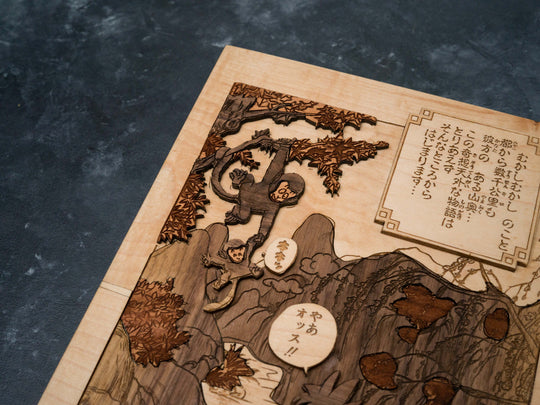 むかしむかし のこと
都から数千公里も
彼方の ある山奥…
この奇想天外な物語は
とりあえず
そんなところから
はじまります…
やあ
オッス!!